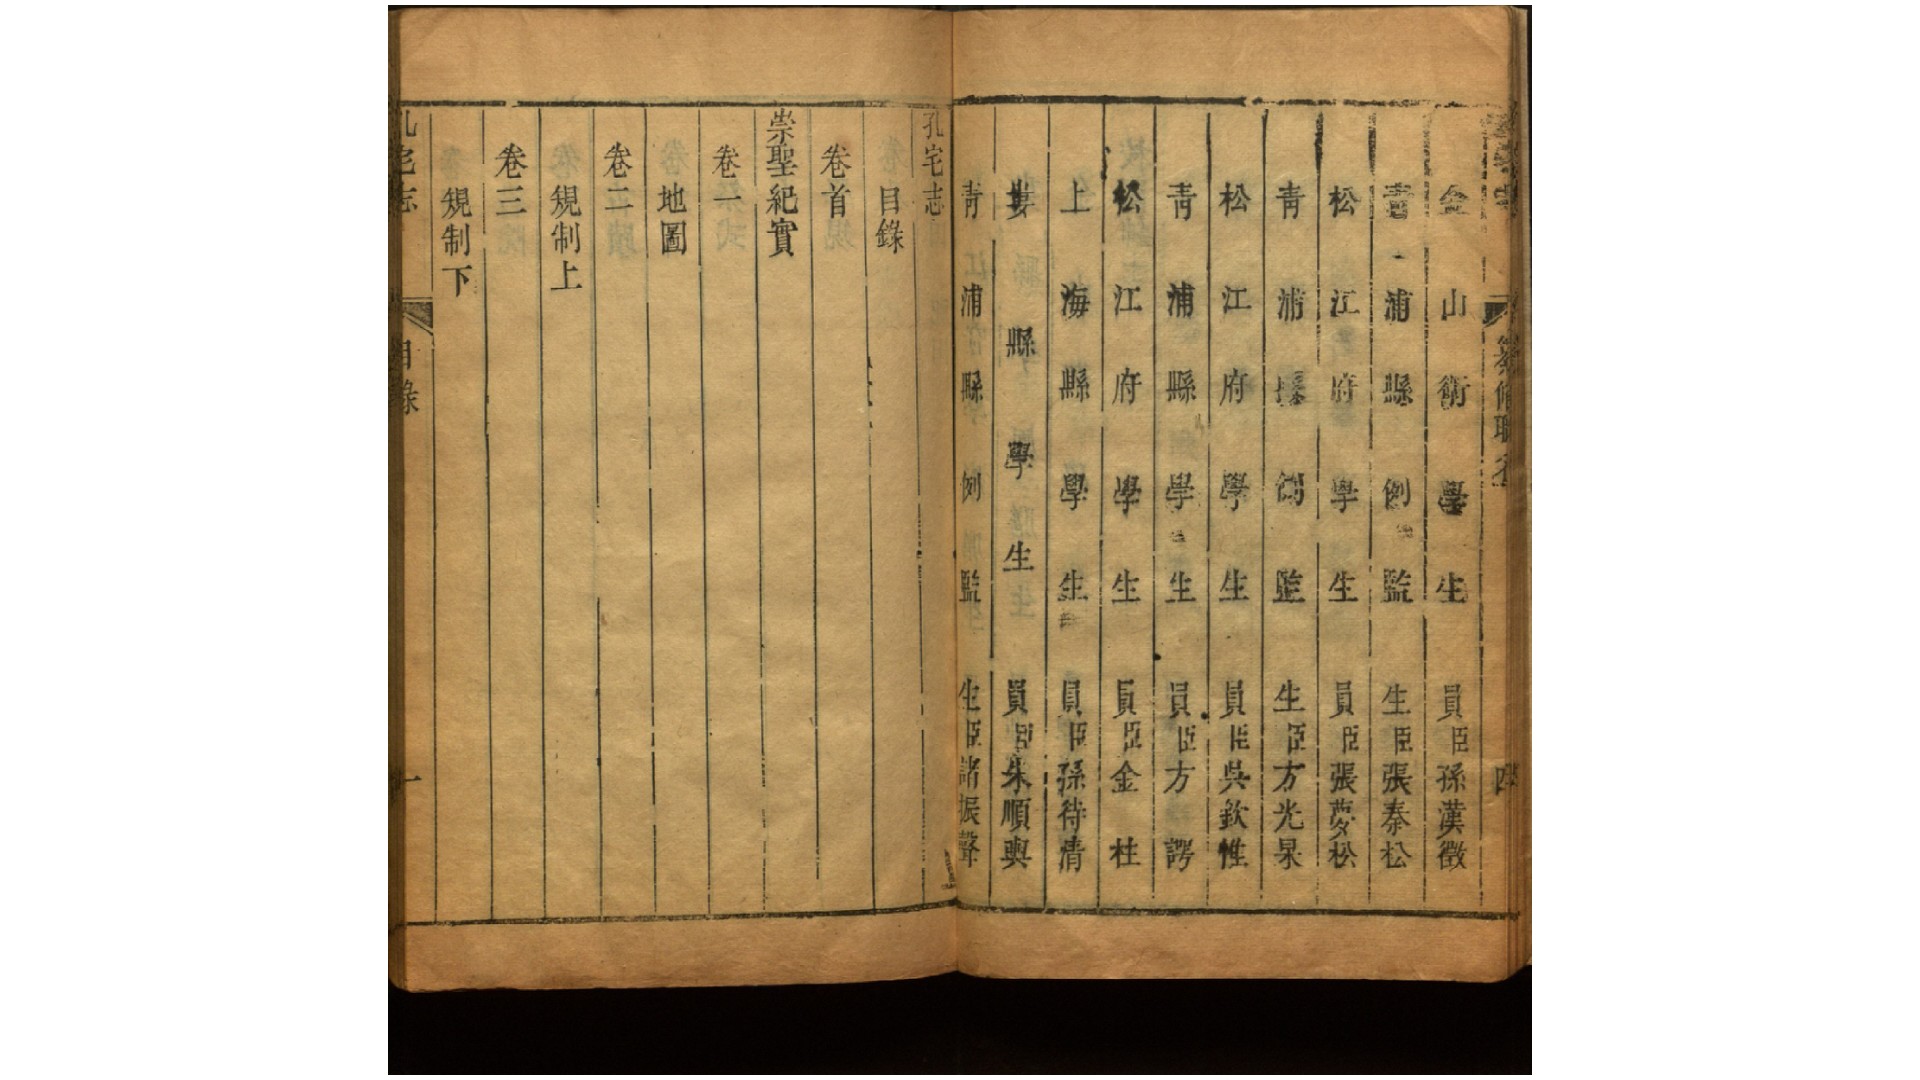 金山衛學生員臣孫漢徵
青浦縣例監生臣張泰松
松江府學生員臣張夢松
青浦縣例監生臣方光杲
松江府學生員臣吳欽惟
青浦縣學生員臣方諤
松江府學生員臣金柱
上海縣學生員臣孫待清
婁縣學生員臣朱順輿
青浦縣例監生臣諸振聲
孔宅志
目錄
卷首
崇聖紀實
卷一
地圖
卷二
規制上
卷三
規制下
孔宅志
目錄
一